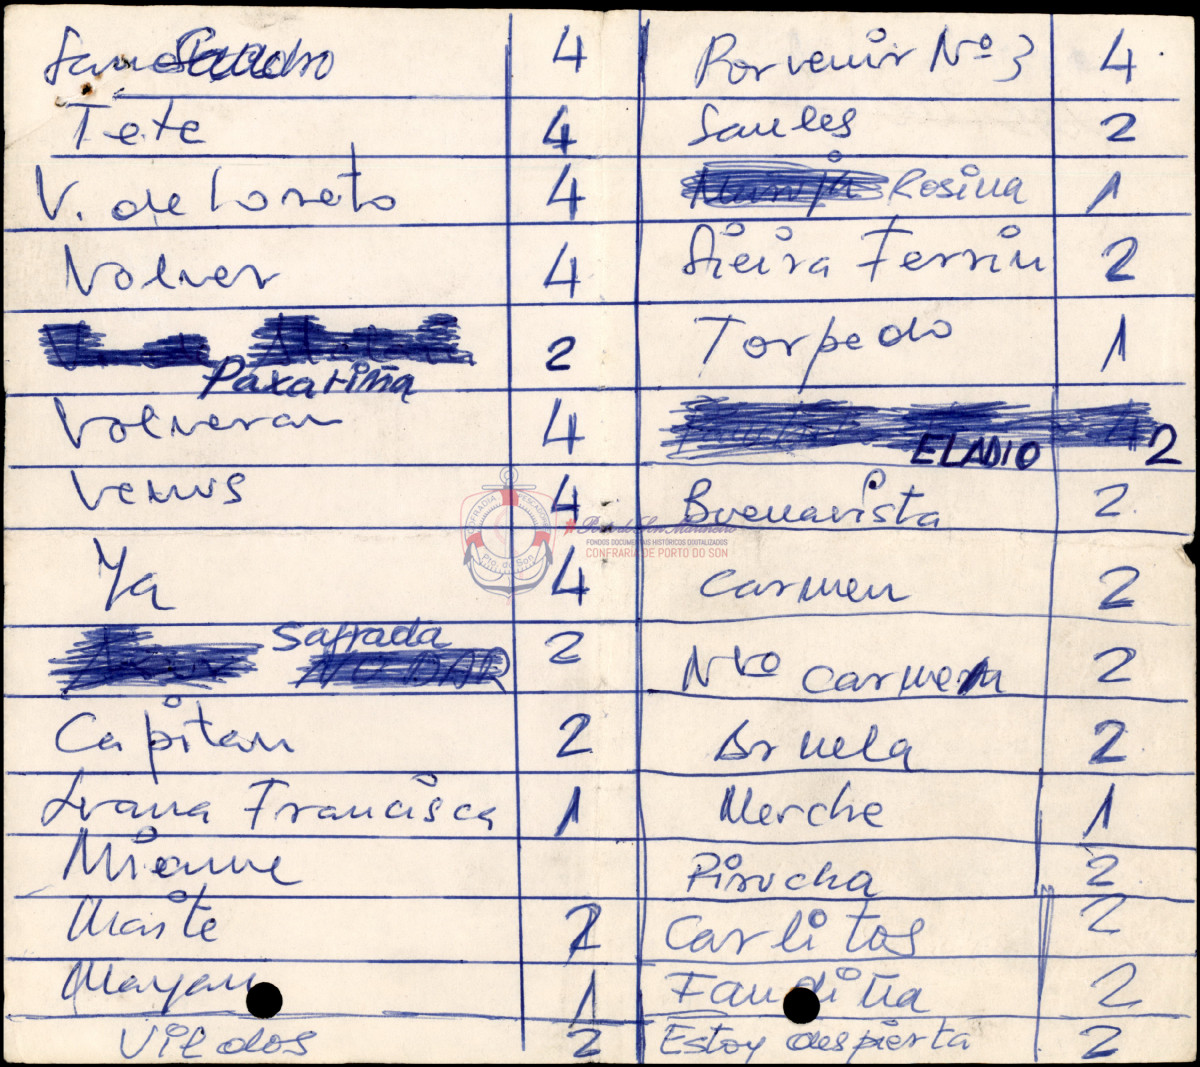 4
Tete 4
V. de Loreto 4
Volver 4
Paxariña 2
Volveran 4
Venus 4
Ya 4
Safrada 2
NODAR
Capitan 2
Juana Francisca 1
Mianne
Maite 2
Mayan 1
Vildos 2
Porvenir Nº 3 4
Saules 2
Rosina 1
Sieira Ferrin 2
Torpedo 1
ELADIO 2
Buenavista 2
Carmen 2
Nº Carmen 2
2
Merche 1
Pirucha 2
Carlitos 2
Fandiña 2
Estoy despierta 2
COFRADIA PESCADORES
Pto. do Son
FONDOS DOCUMENTAIS HISTÓRICOS DIXITALIZADOS
CONFRARÍA DE PORTO DO SON